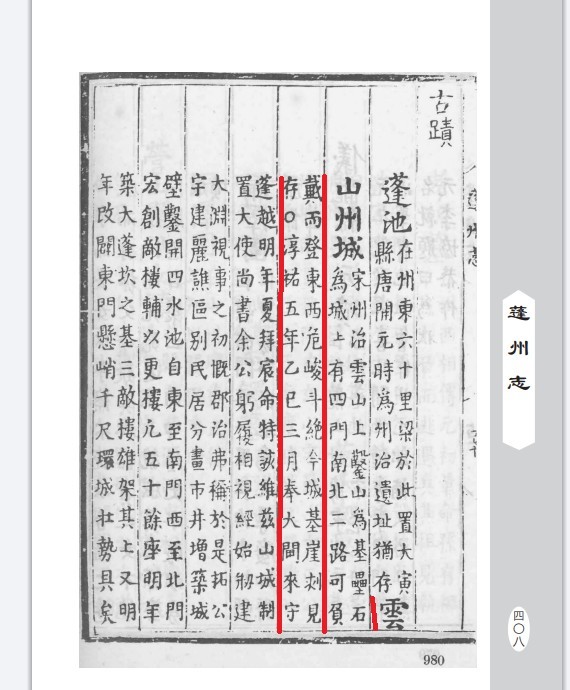 古蹟
蓬池在州東六十里梁於此置大寅
縣唐開元時為州治遺址猶存雲
山州城宋州治雲山上鑿山為基壘石
為城上有四門南北二路可員
戴而登東西危峻斗絕今城基崖刻見
存○淳祐五年乙巳三月奉大閫來守
蓬越明年夏拜宸命特維茲山城制
置大使尚書余公躬履相視經始剏建
大淵視事之初慨郡治弗稱於是拓公
宇建麗譙區別民居分畫市井增築城
壁鑿開四水池自東至南門西至北門
宏創敵樓輔以更樓凢五十餘座明年
築大蓬坎之基三敵樓雄架其上又明
年改闢東門懸峭千尺環城壯勢具矣
蓬州志
四〇八
980